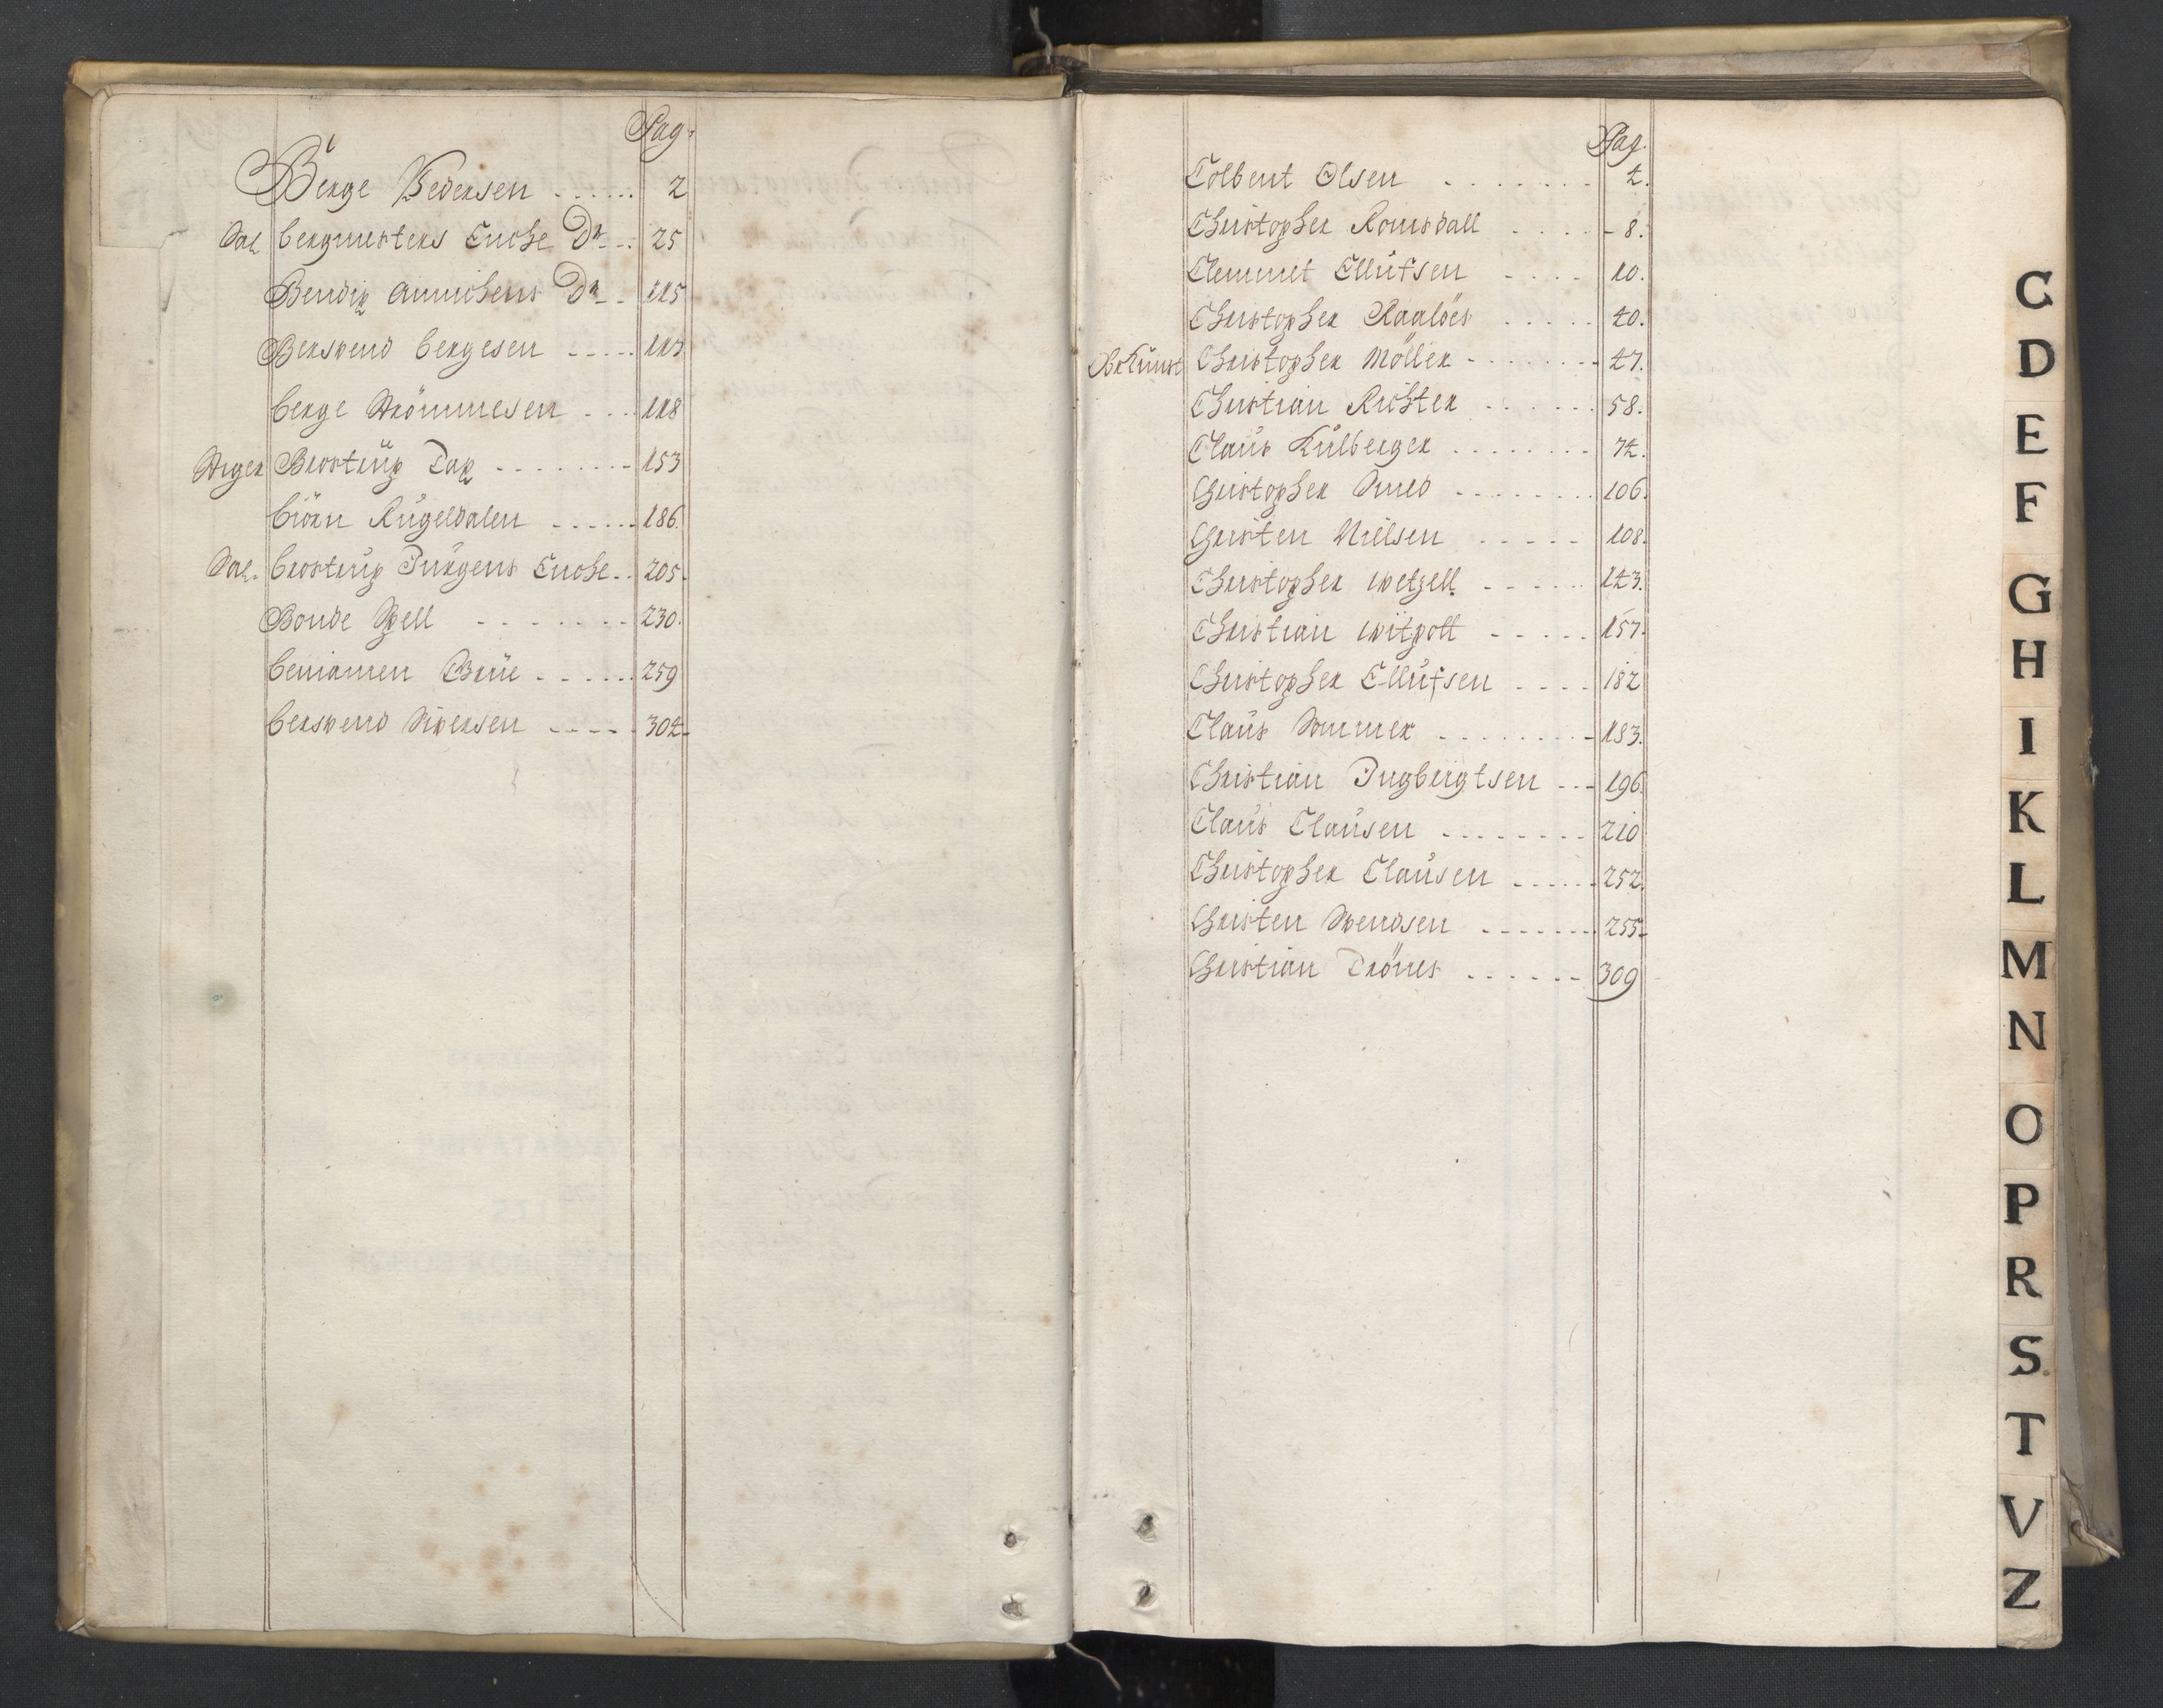 Pag.
Börge Pedersen ...... 2
Sal. bergmesters Enche Dr. .. 25
Bendix Annichens Dr. .. 115
Berswend bergesen ..... 117
berge Strömmesen ... 118
Stiger Brostrüp Dax ........ 153
biörn Rügeldalen ...... 186.
Sal. brostrup Jürgens Enche .. 205.
Bonde Spell ....... 230.
beniamen Brüe ...... 259
berswend Siwersen ..... 304
Pag.
Colbent Olsen ........ 4.
Christopher Romsdall ..... 8.
Clemmet Ellüfsen .... 10.
Christopher Raaloes ..... 40.
Christopher Möller ........ 47.
Christian Richter ...... 58.
Claüs Külberger ........ 74.
Christopher Smed ........ 106.
Christen Nielsen ..... 108.
Christopher Wetzell ...... 143.
Christian Witpott ..... 157.
Christopher Ellüfsen .... 182
Claüs Sommer ......... 183.
Christian Ingbrigtsen ... 196.
Claüs Claüsen ........ 210
Christopher Claüsen ...... 252.
Christen Swendsen ........ 255.
Christian Drönes ...... 309
C
D
E
F
G
H
I
K
L
M
N
O
P
R
S
T
V
Z